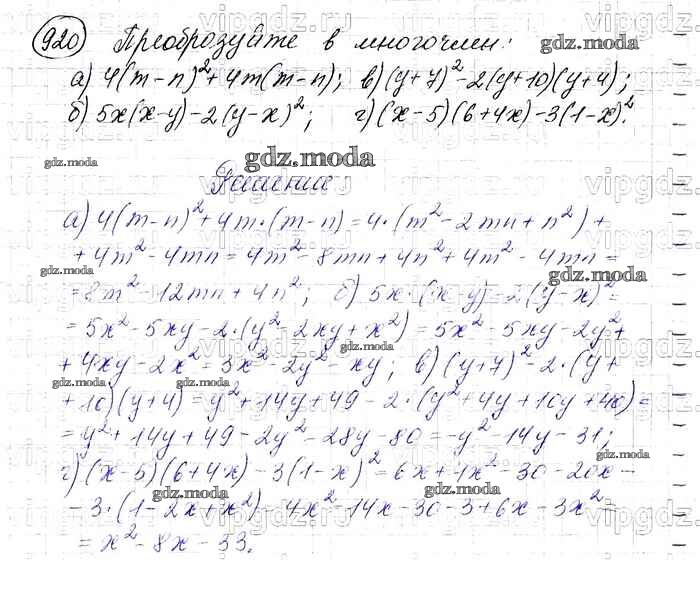 920 Преобразуйте в многочлен:
а) 4(m-n)²+4m(m-n); в) (y+7)²-2(y+10)(y+4);
б) 5x(x-y)-2(y-x)²; г) (x-5)(6+4x)-3(1-x)².
gdz.moda
Решение
а) 4(m-n)²+4m·(m-n)=4·(m²-2mn+n²)+
+4m²-4mn=4m²-8mn+4n²+4m²-4mn=
=8m²-12mn+4n²; б) 5x·(x-y)-2(y-x)²=
=5x²-5xy-2·(y²-2xy+x²)=5x²-5xy-2y²+
+4xy-2x²=3x²-2y²-xy; в) (y+7)²-2·(y+
+10)(y+4)=y²+14y+49-2·(y²+4y+10y+40)=
=y²+14y+49-2y²-28y-80=-y²-14y-31;
г) (x-5)(6+4x)-3(1-x)²=6x+4x²-30-20x-
-3·(1-2x+x²)=4x²-14x-30-3+6x-3x²=
=x²-8x-33.